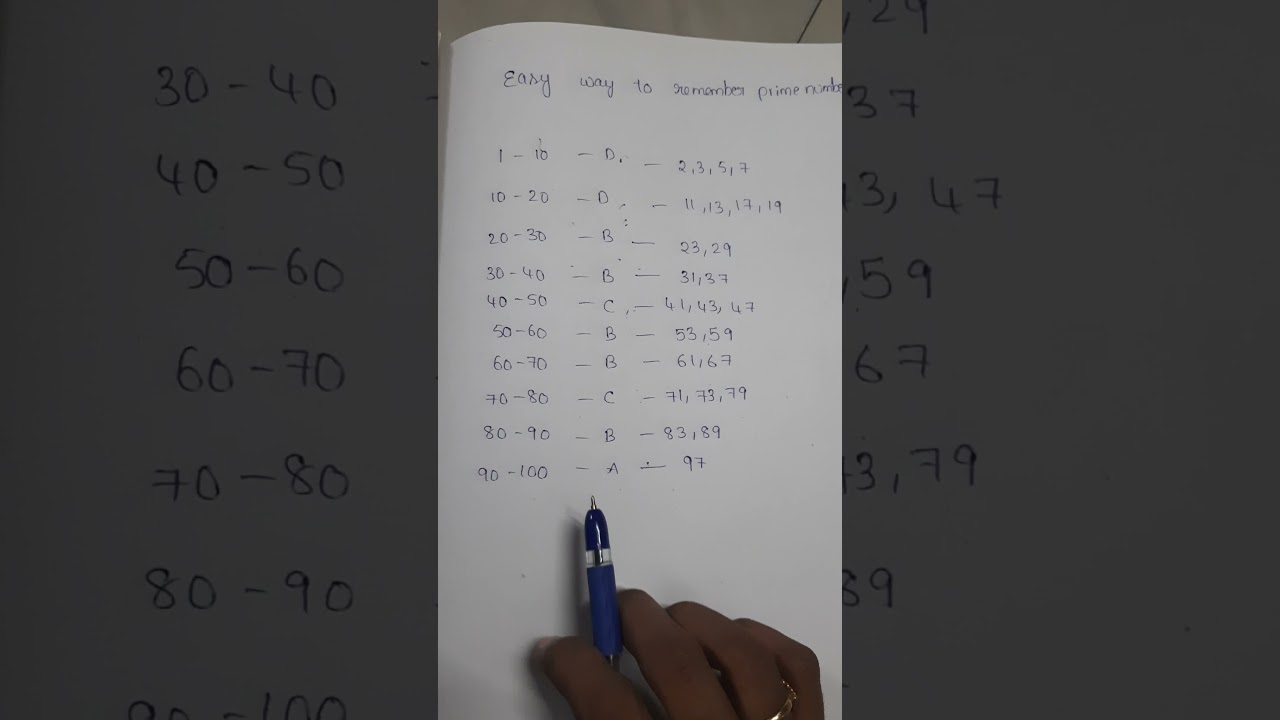 Easy way to remember prime numbe
1 - 10 - D. - 2,3,5,7
10 - 20 - D, - 11,13,17,19
20 - 30 - B - 23,29
30 - 40 - B - 31,37
40 - 50 - C, - 41,43,47
50 - 60 - B - 53,59
60 - 70 - B - 61,67
70 - 80 - C - 71,73,79
80 - 90 - B - 83,89
90 - 100 - A - 97